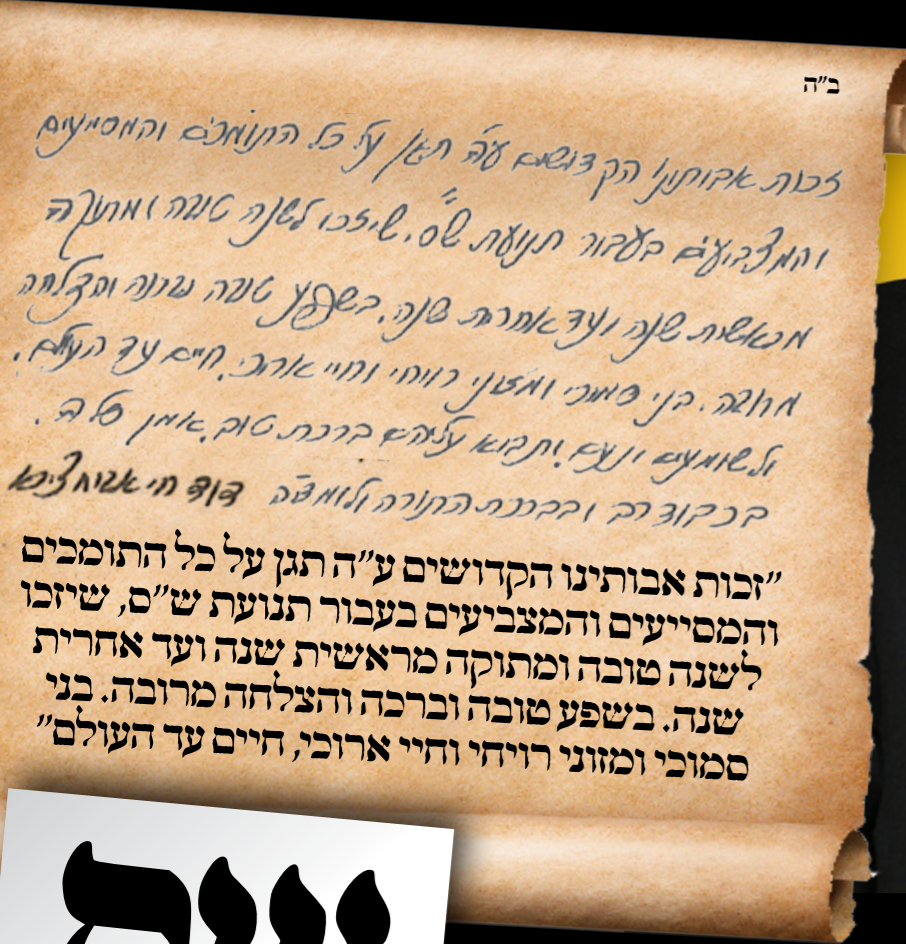 ב״ה
זכות אבותינו הקדושים ע״ה תגן על כל התומכים והמסייעים
והמצביעים בעבור תנועת ש״ס, שיזכו לשנה טובה ומתוקה
מראשית שנה ועד אחרית שנה. בשפע טובה וברכה והצלחה
מרובה. בני סמוכי ומזוני רויחי וחיי ארוכי, חיים עד העולם.
ולשומעים ינעם, ותבוא עליהם ברכת טוב, אמן סלה.
בכבוד רב ובברכת התורה ולומדיה דוד חי אבוחצירא
״זכות אבותינו הקדושים ע״ה תגן על כל התומכים
והמסייעים והמצביעים בעבור תנועת ש״ס, שיזכו
לשנה טובה ומתוקה מראשית שנה ועד אחרית
שנה. בשפע טובה וברכה והצלחה מרובה. בני
סמוכי ומזוני רויחי וחיי ארוכי, חיים עד העולם״